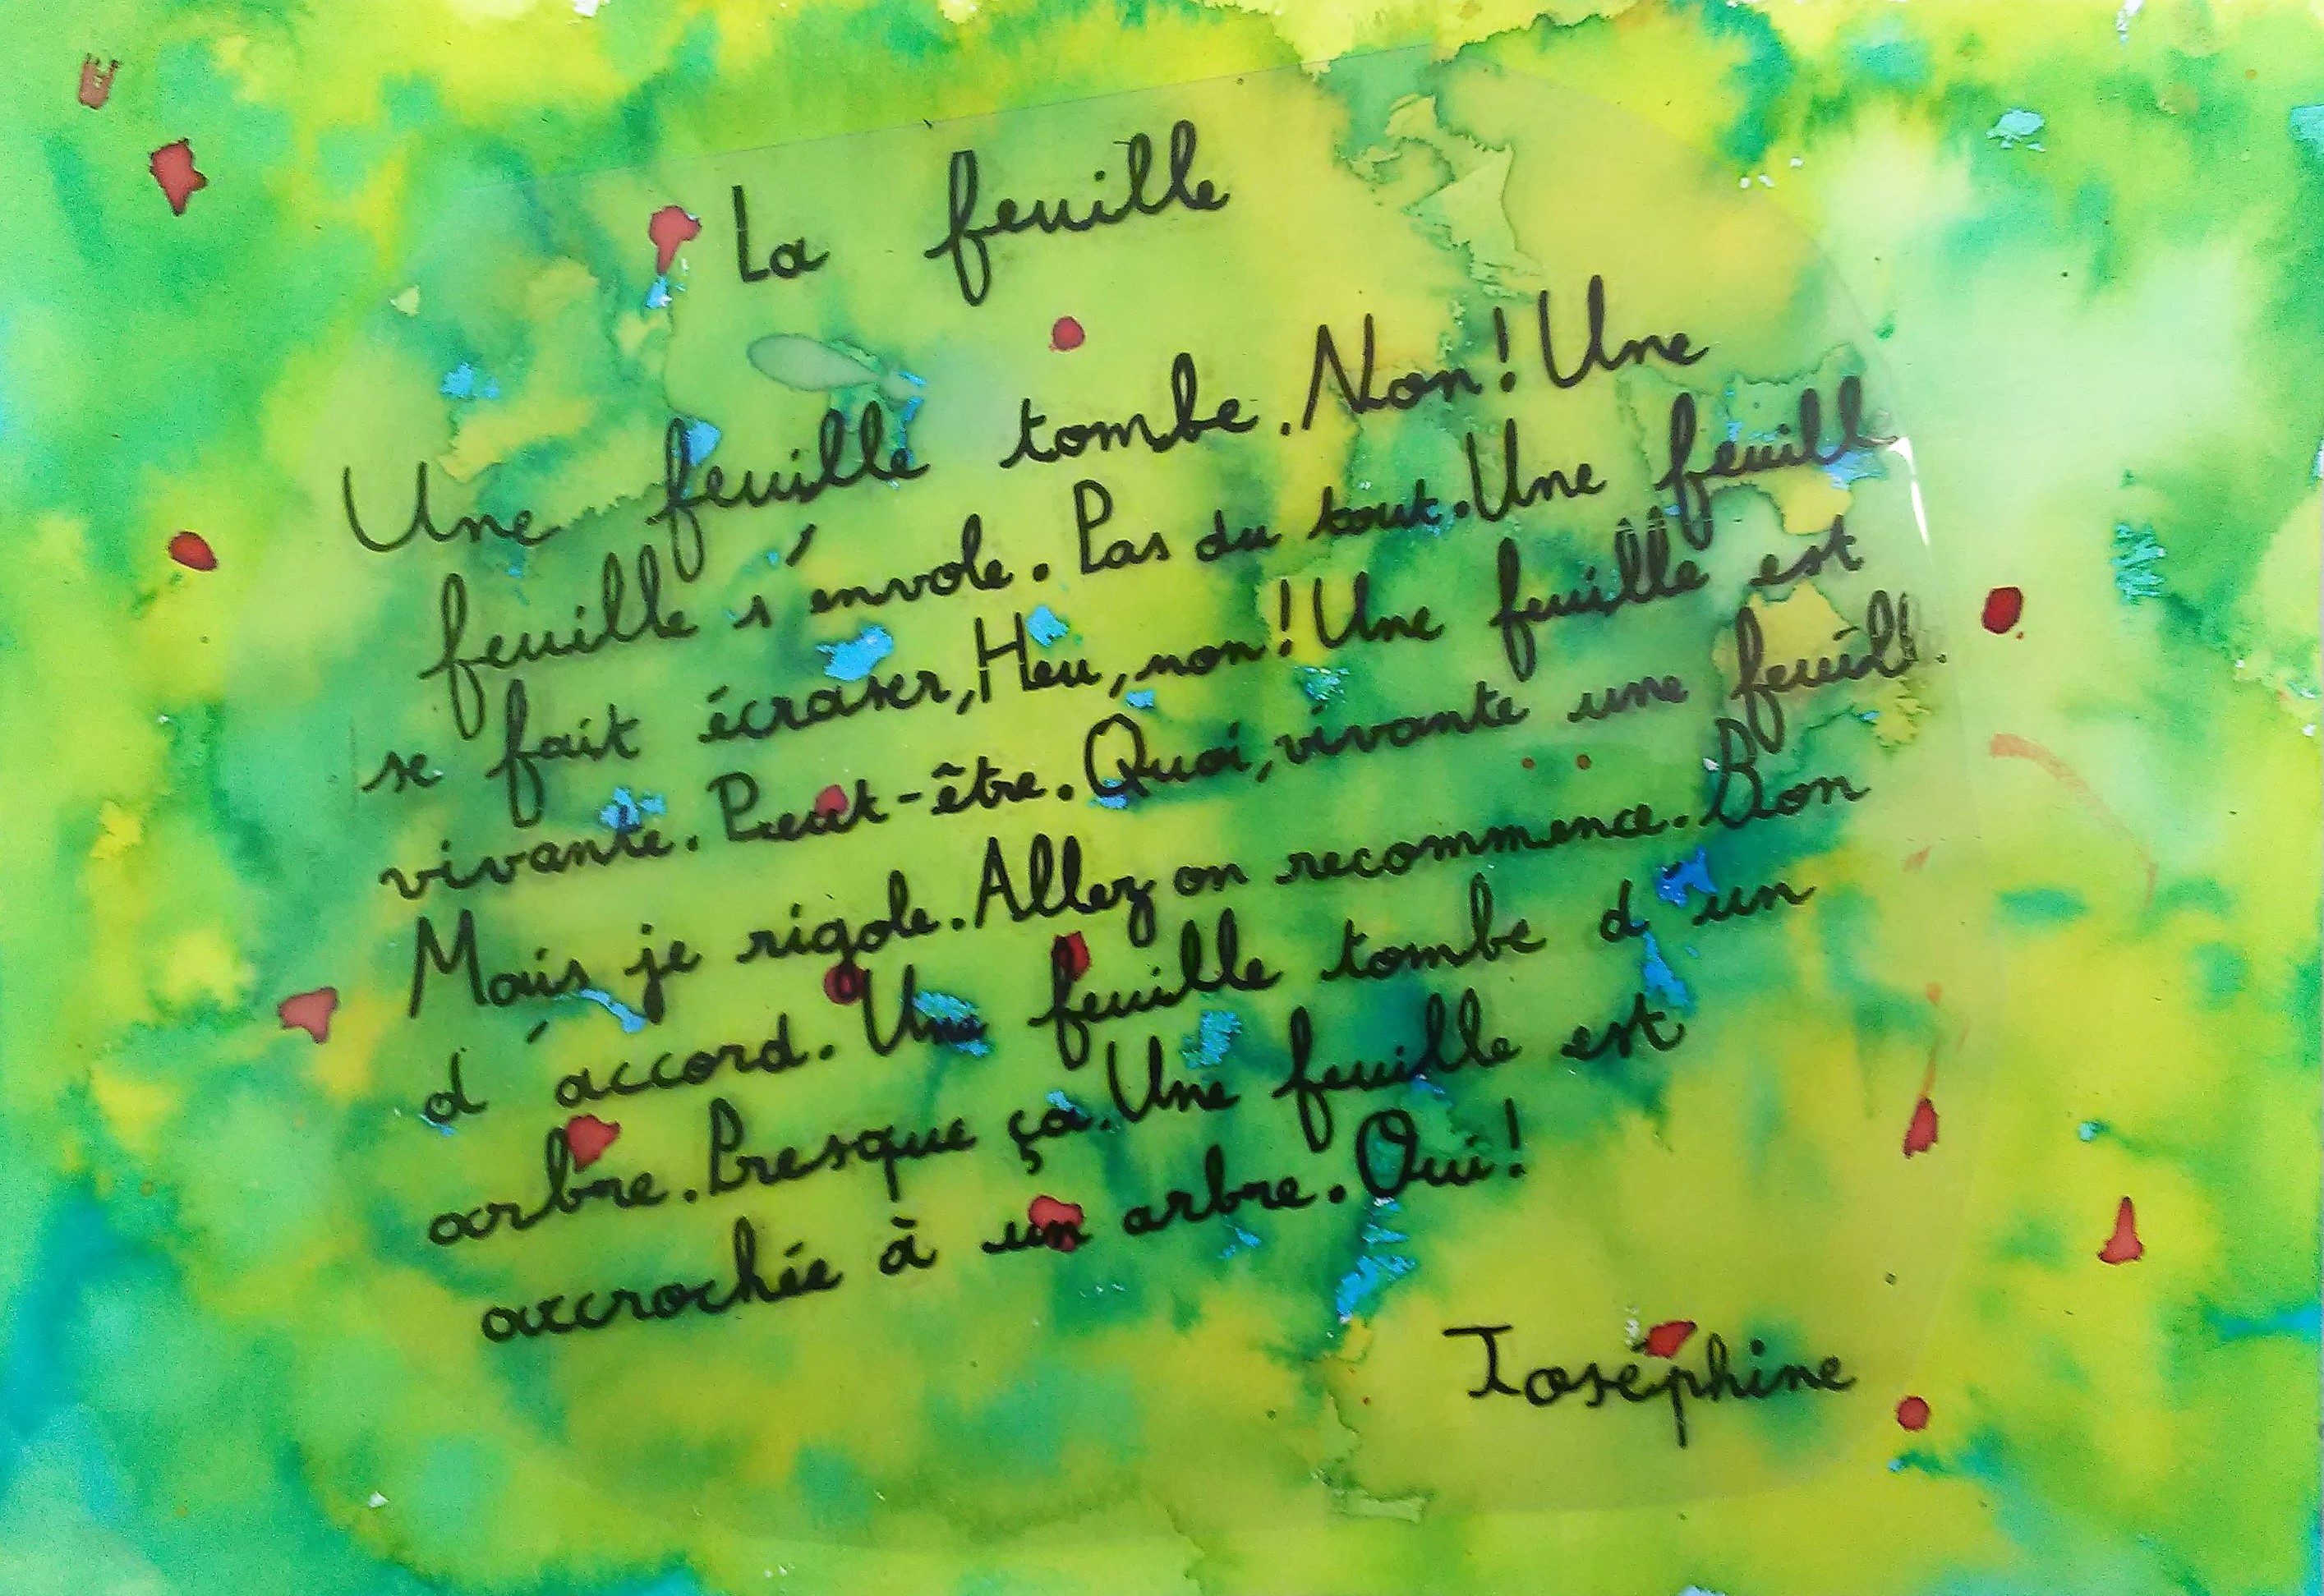 La feuille
Une feuille tombe. Non! Une
feuille s'envole. Pas du tout. Une feuille
se fait écraser, Heu, non! Une feuille est
vivante. Peut-être. Quoi, vivante une feuill.
Mais je rigole. Allez on recommence. Bon
d'accord. Une feuille tombe d'un
arbre. Presque ça. Une feuille est
accrochée à un arbre. Oui!
Joséphine